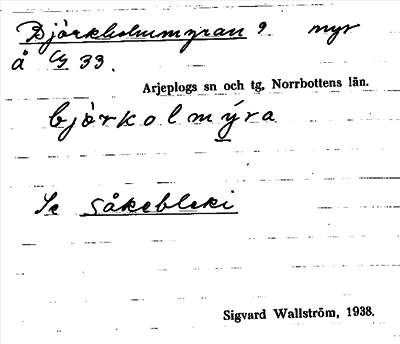 Björkholmmyran 9 myr
å G 33.
Arjeplogs sn och tg, Norrbottens län.
bjòrkolmýra
Se Såkebleki
Sigvard Wallström, 1938.